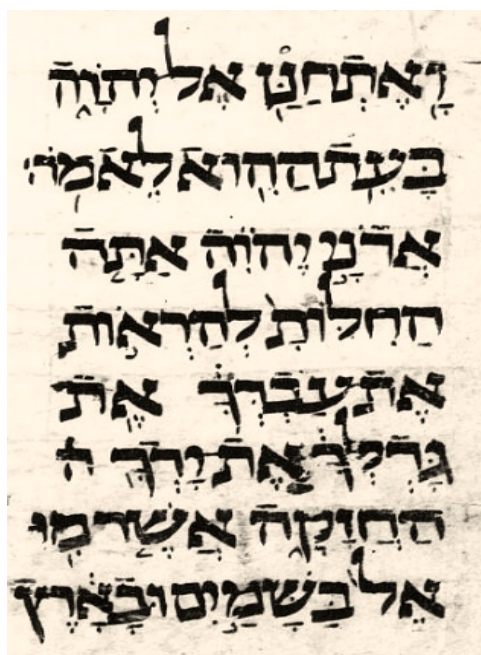 וָאֶתְחַנַּן אֶל יְהוָה
בָּעֵת הַהִוא לֵאמֹר
אֲדֹנָי יֱהוִה אַתָּה
הַחִלּוֹתָ לְהַרְאוֹת
אֶת עַבְדְּךָ אֶת
גָּדְלְךָ וְאֶת יָדְךָ ה
הַחֲזָקָה אֲשֶׁר מִי
אֵל בַּשָּׁמַיִם וּבָאָרֶץ